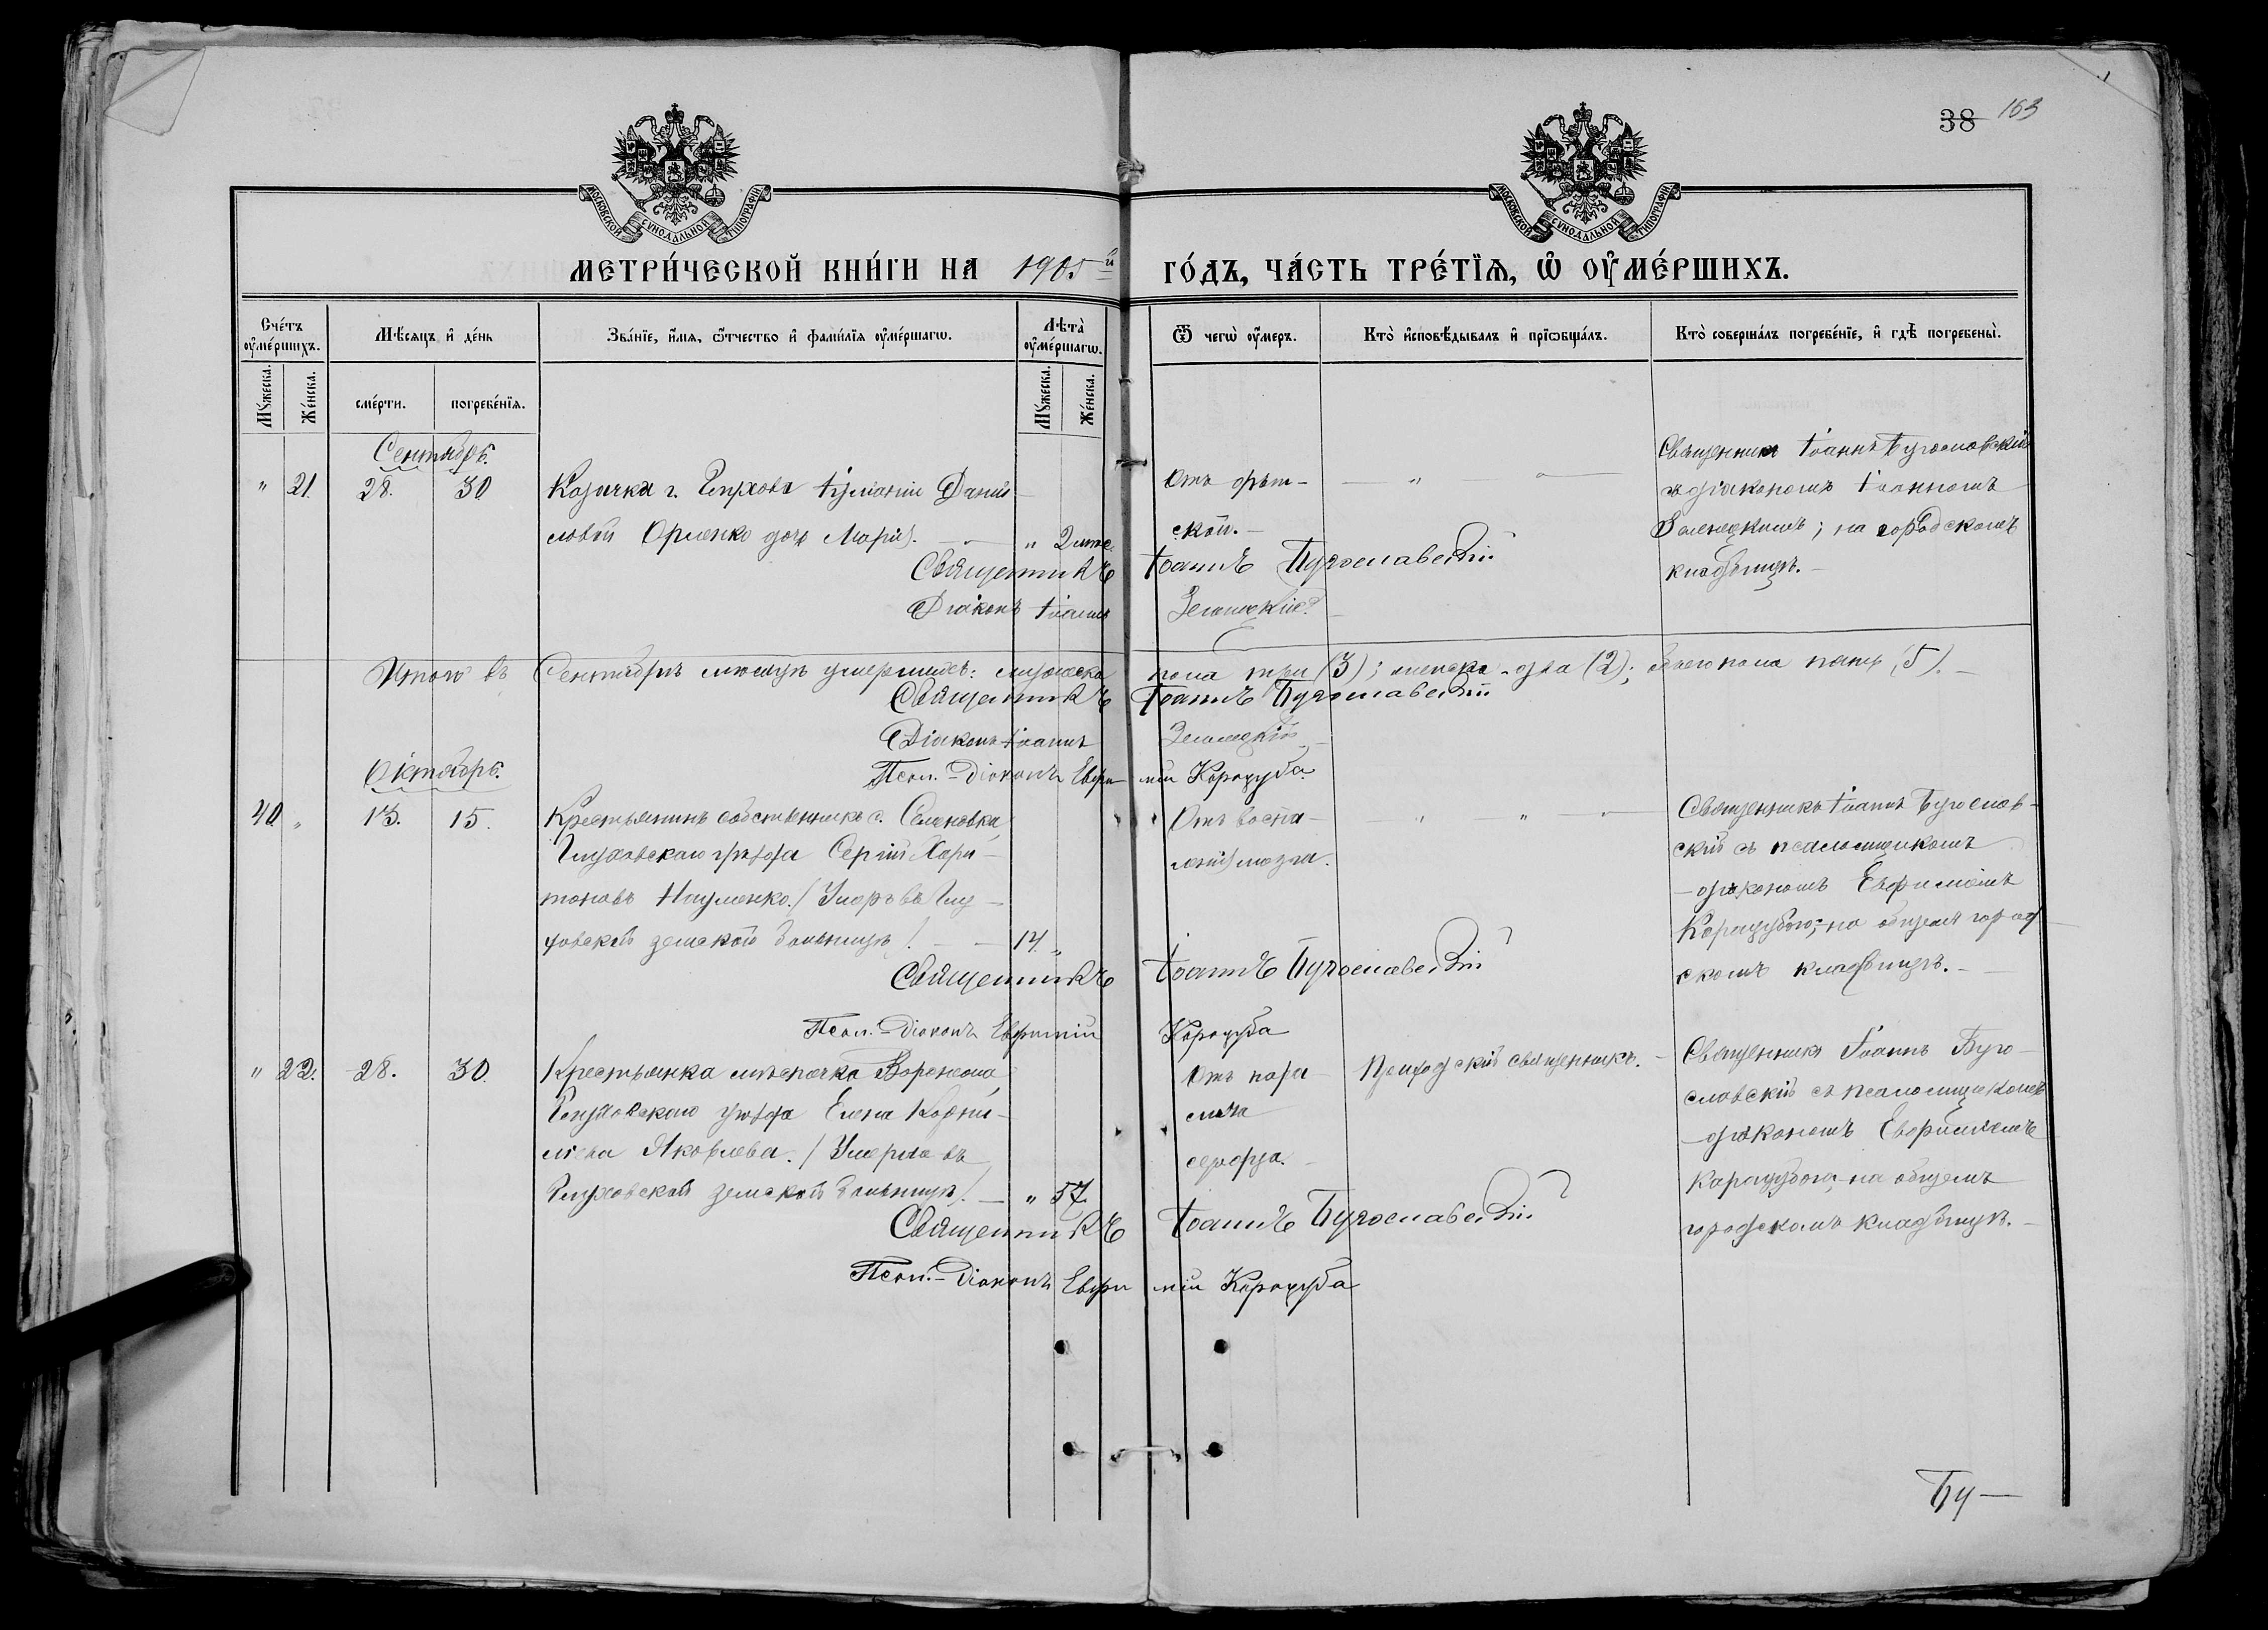 38 163
МОСКОВСКОЙ СѴНОДАЛЬНОЙ ТИПОГРАФІИ
МОСКОВСКОЙ СѴНОДАЛЬНОЙ ТИПОГРАФІИ
МЕТРИ́ЧЕСКОЙ КНИ́ГИ НА 1905й ГО́ДЪ, ЧА́СТЬ ТРЕ́ТЇѦ, Ѡ҆ ОУ҆МЕ́РШИХЪ.
Сче́тъ оу҆ме́ршихъ.
Мѣ́сяцъ и҆ де́нь
Зва́нїе, и҆́мѧ, ѻ҆́тчество и҆ фами́лїѧ оу҆ме́ршагѡ.
Лѣ́та оу҆ме́ршагѡ.
Ѿ чегѡ̀ оу҆́меръ.
Кто̀ и҆сповѣ́дывалъ и҆ прїѡбща́лъ.
Кто̀ соверша́лъ погребе́нїе, и҆ гдѣ̀ погребены̀.
Мꙋ́жеска.
Же́нска.
сме́рти.
погребе́нїѧ.
Мꙋ́жеска.
Же́нска.
Сентябрь.
" 21. 28. 30
Козачка г. Глухова Іуліаніи Даніи-
ловой Орленко дочь Марія. — " 2 мѣс.
Отъ дѣт-
ской.—
Священникъ Іоаннъ Бугославскій
съ діакономъ Іоанномъ
Зеленецкимъ; на городскомъ
кладбищѣ.—
Священникъ Іоаннъ Бугославскій
Діаконъ Іоаннъ
Итого въ Сентябрѣ мѣсяцѣ умершихъ: мужеска пола три (3); женска - два (2); обоего пола пять (5).—
Священникъ Іоаннъ Бугославскій
Діаконъ Іоаннъ
Псал.-Діаконъ Евфимій Карацуба
Октябрь.
40. " 13. 15.
Крестьянинъ собственникъ с. Семеновки,
Глуховскаго уѣзда Сергій Хари-
тоновъ Науменко. (Умеръ въ Глу-
ховской земской больницѣ). — 14 "
Отъ воспа-
ленія мозга.
Священникъ Іоаннъ Бугослав-
скій съ псаломщикомъ
-діакономъ Евфиміемъ
Карацубою; на общемъ город-
скомъ кладбищѣ.—
Священникъ Іоаннъ Бугославскій
Псал.-Діаконъ Евфимій Карацуба
" 22. 28. 30.
Крестьянка мѣстечка Воронежа,
Глуховскаго уѣзда Елена Корни-
ліева Яковлева. (Умерла въ
Глуховской земской больницѣ). — " 57.
Отъ пара-
лича
сердца.—
Приходскій священникъ.—
Священникъ Іоаннъ Буго-
славскій съ псаломщикомъ
-діакономъ Евфиміемъ
Карацубою; на общемъ
городскомъ кладбищѣ.—
Священникъ Іоаннъ Бугославскій
Псал.-Діаконъ Евфимій Карацуба
Бу—